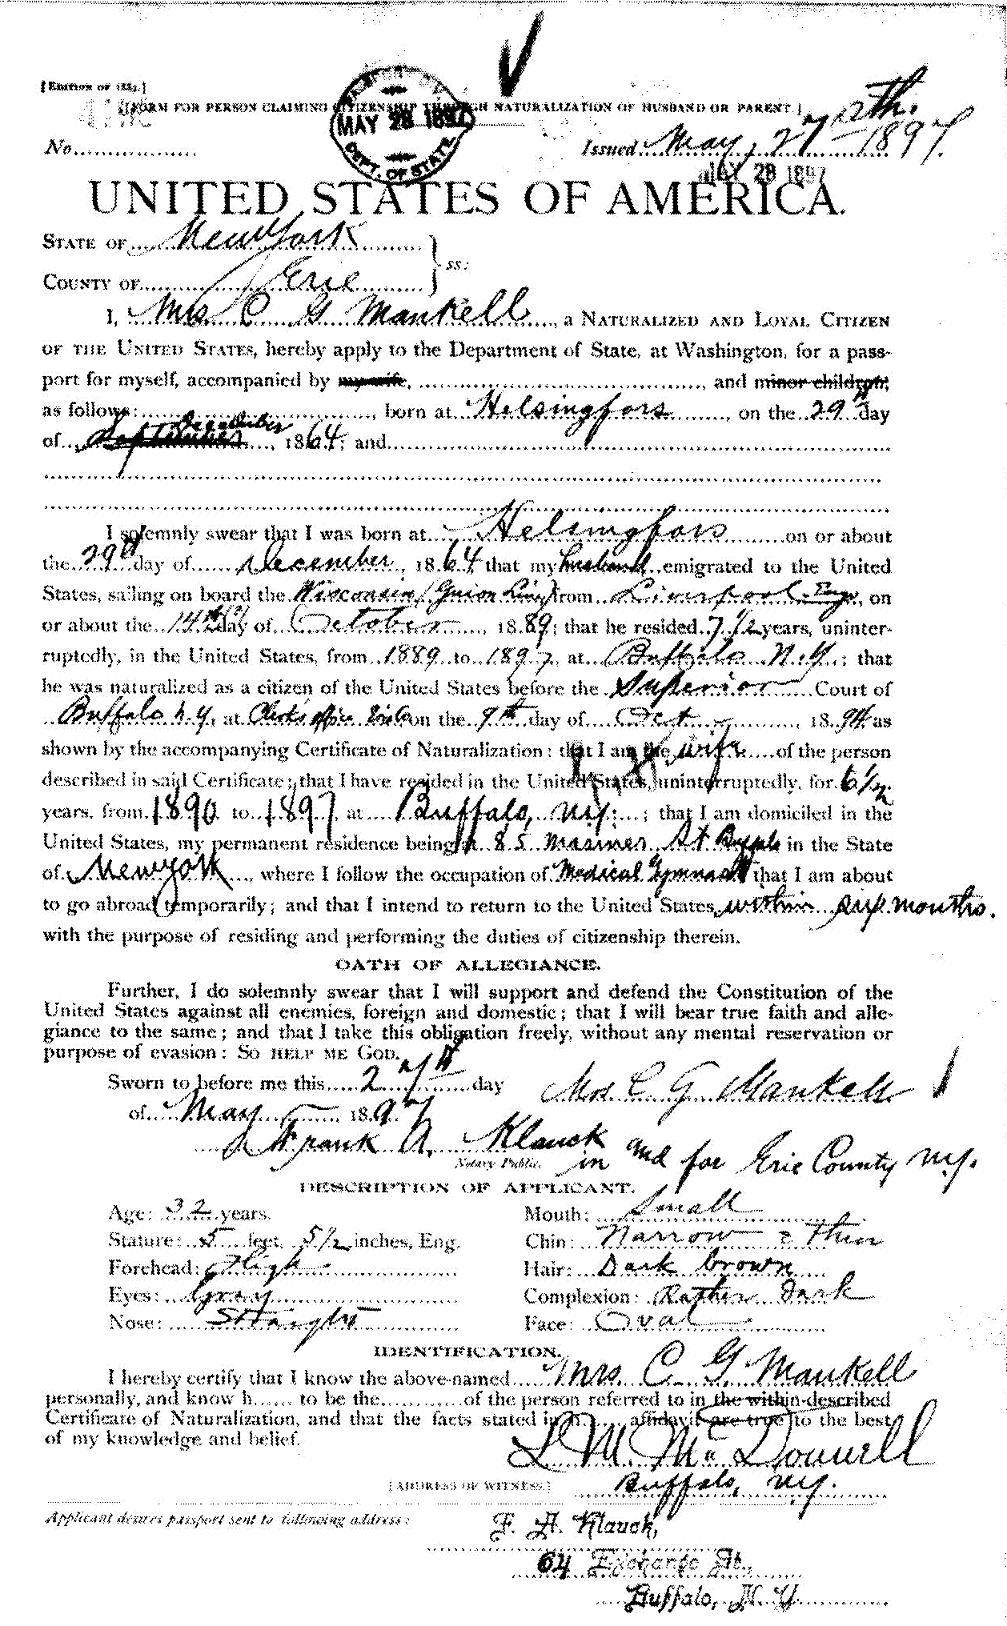 [EDITION OF 1884.]
[FORM FOR PERSON CLAIMING CITIZENSHIP THROUGH NATURALIZATION OF HUSBAND OR PARENT.]
MAY 28 1897
DEPT. OF STATE
No.
Issued May, 27th. 1897.
MAY 28 1897
UNITED STATES OF AMERICA.
STATE OF New York
ss:
COUNTY OF Erie
I, Mrs C G Mankell, a NATURALIZED AND LOYAL CITIZEN
OF THE UNITED STATES, hereby apply to the Department of State, at Washington, for a pass-
port for myself, accompanied by my wife, , and minor children,
as follows: , born at Helsingfors, on the 29th day
of September December, 1864; and
I solemnly swear that I was born at Helsingfors on or about
the 29th day of December, 1864 that my husband emigrated to the United
States, sailing on board the Wisconsin (Guion Line) from Liverpool. Eng., on
or about the 14th day of October, 1889; that he resided 7 1/2 years, uninter-
ruptedly, in the United States, from 1889 to 1897, at Buffalo N.Y.; that
he was naturalized as a citizen of the United States before the Superior Court of
Buffalo N.Y, at Clerk's office on the 9th day of Oct, 1894 as
shown by the accompanying Certificate of Naturalization; that I am the wife of the person
described in said Certificate; that I have resided in the United States, uninterruptedly, for 6 1/2
years, from 1890 to 1897 at Buffalo, N.Y.; that I am domiciled in the
United States, my permanent residence being at 85 Mariner St Buffalo in the State
of New York, where I follow the occupation of Medical Gymnast that I am about
to go abroad temporarily; and that I intend to return to the United States within six months.
with the purpose of residing and performing the duties of citizenship therein.
OATH OF ALLEGIANCE.
Further, I do solemnly swear that I will support and defend the Constitution of the
United States against all enemies, foreign and domestic; that I will bear true faith and alle-
giance to the same; and that I take this obligation freely, without any mental reservation or
purpose of evasion: SO HELP ME GOD.
Sworn to before me this 27th day
Mrs C G Mankell.
of May, 1897
Frank A. Klauck
Notary Public. in and for Erie County N.Y.
DESCRIPTION OF APPLICANT.
Age: 32 years.
Mouth: Small
Stature: 5 feet, 5 1/2 inches, Eng.
Chin: Narrow & thin
Forehead: High
Hair: Dark brown
Eyes: Gray
Complexion: Rather dark
Nose: Straight
Face: Oval
IDENTIFICATION.
I hereby certify that I know the above-named Mrs. C G. Mankell
personally, and know h to be the of the person referred to in the within-described
Certificate of Naturalization, and that the facts stated in h affidavit are true to the best
of my knowledge and belief.
L. M. McDowell
[ADDRESS OF WITNESS.] Buffalo, N.Y.
Applicant desires passport sent to following address:
F. A. Klauck,
64 Exchange St.,
Buffalo, N. Y.